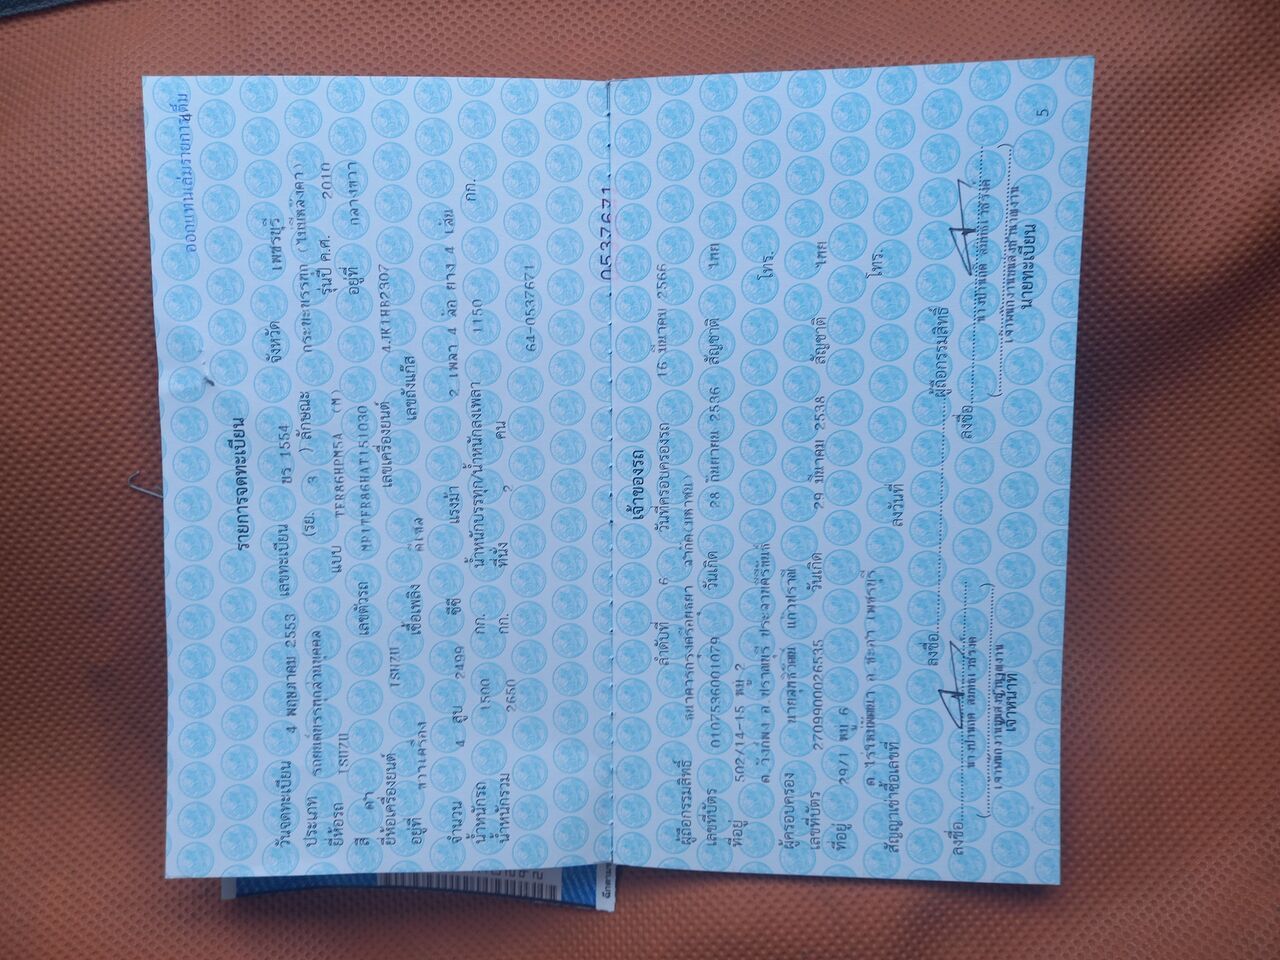 ออกแทนเล่มรายการเต็ม
รายการจดทะเบียน
วันจดทะเบียน 4 พฤษภาคม 2553 เลขทะเบียน ขร 1554 จังหวัด เพชรบุรี
ประเภท รถยนต์บรรทุกส่วนบุคคล (รย. 3 ) ลักษณะ กระบะบรรทุก (ไม่มีหลังคา)
ยี่ห้อรถ ISUZU แบบ TFR86HPM5A (M) รุ่นปี ค.ศ. 2010
สี ดำ เลขตัวรถ MP1TFR86HAT151030 อยู่ที่ กลางขวา
ยี่ห้อเครื่องยนต์ ISUZU เลขเครื่องยนต์ 4JK1HB2307
อยู่ที่ ขวาเครื่อง เชื้อเพลิง ดีเซล เลขถังแก๊ส
จำนวน 4 สูบ 2499 ซีซี แรงม้า 2 เพลา 4 ล้อ ยาง 4 เส้น
น้ำหนักรถ 1500 กก. น้ำหนักบรรทุก/น้ำหนักลงเพลา 1150 กก.
น้ำหนักรวม 2650 กก. ที่นั่ง 2 คน
64-0537671
0537671
เจ้าของรถ
ลำดับที่ 6 วันที่ครอบครองรถ 16 มีนาคม 2566
ผู้ถือกรรมสิทธิ์ ธนาคารกรุงศรีอยุธยา จำกัด(มหาชน)
เลขที่บัตร 0107536001079 วันเกิด 28 กันยายน 2536 สัญชาติ ไทย
ที่อยู่ 502/14-15 หมู่ 2
ต.วังก์พง อ.ปราณบุรี ประจวบคีรีขันธ์ โทร.
ผู้ครอบครอง นายสุทธิวัฒน์ แก้วปราณี
เลขที่บัตร 2709900026535 วันเกิด 29 มีนาคม 2538 สัญชาติ ไทย
ที่อยู่ 29/1 หมู่ 6
ต.ไร่ใหม่พัฒนา อ.ชะอำ เพชรบุรี โทร.
สัญญาเช่าซื้อเลขที่ ลงวันที่
ลงชื่อ ผู้ถือกรรมสิทธิ์
ลงชื่อ
ลงชื่อ
เจ้าหน้าที่
นายทะเบียน
5